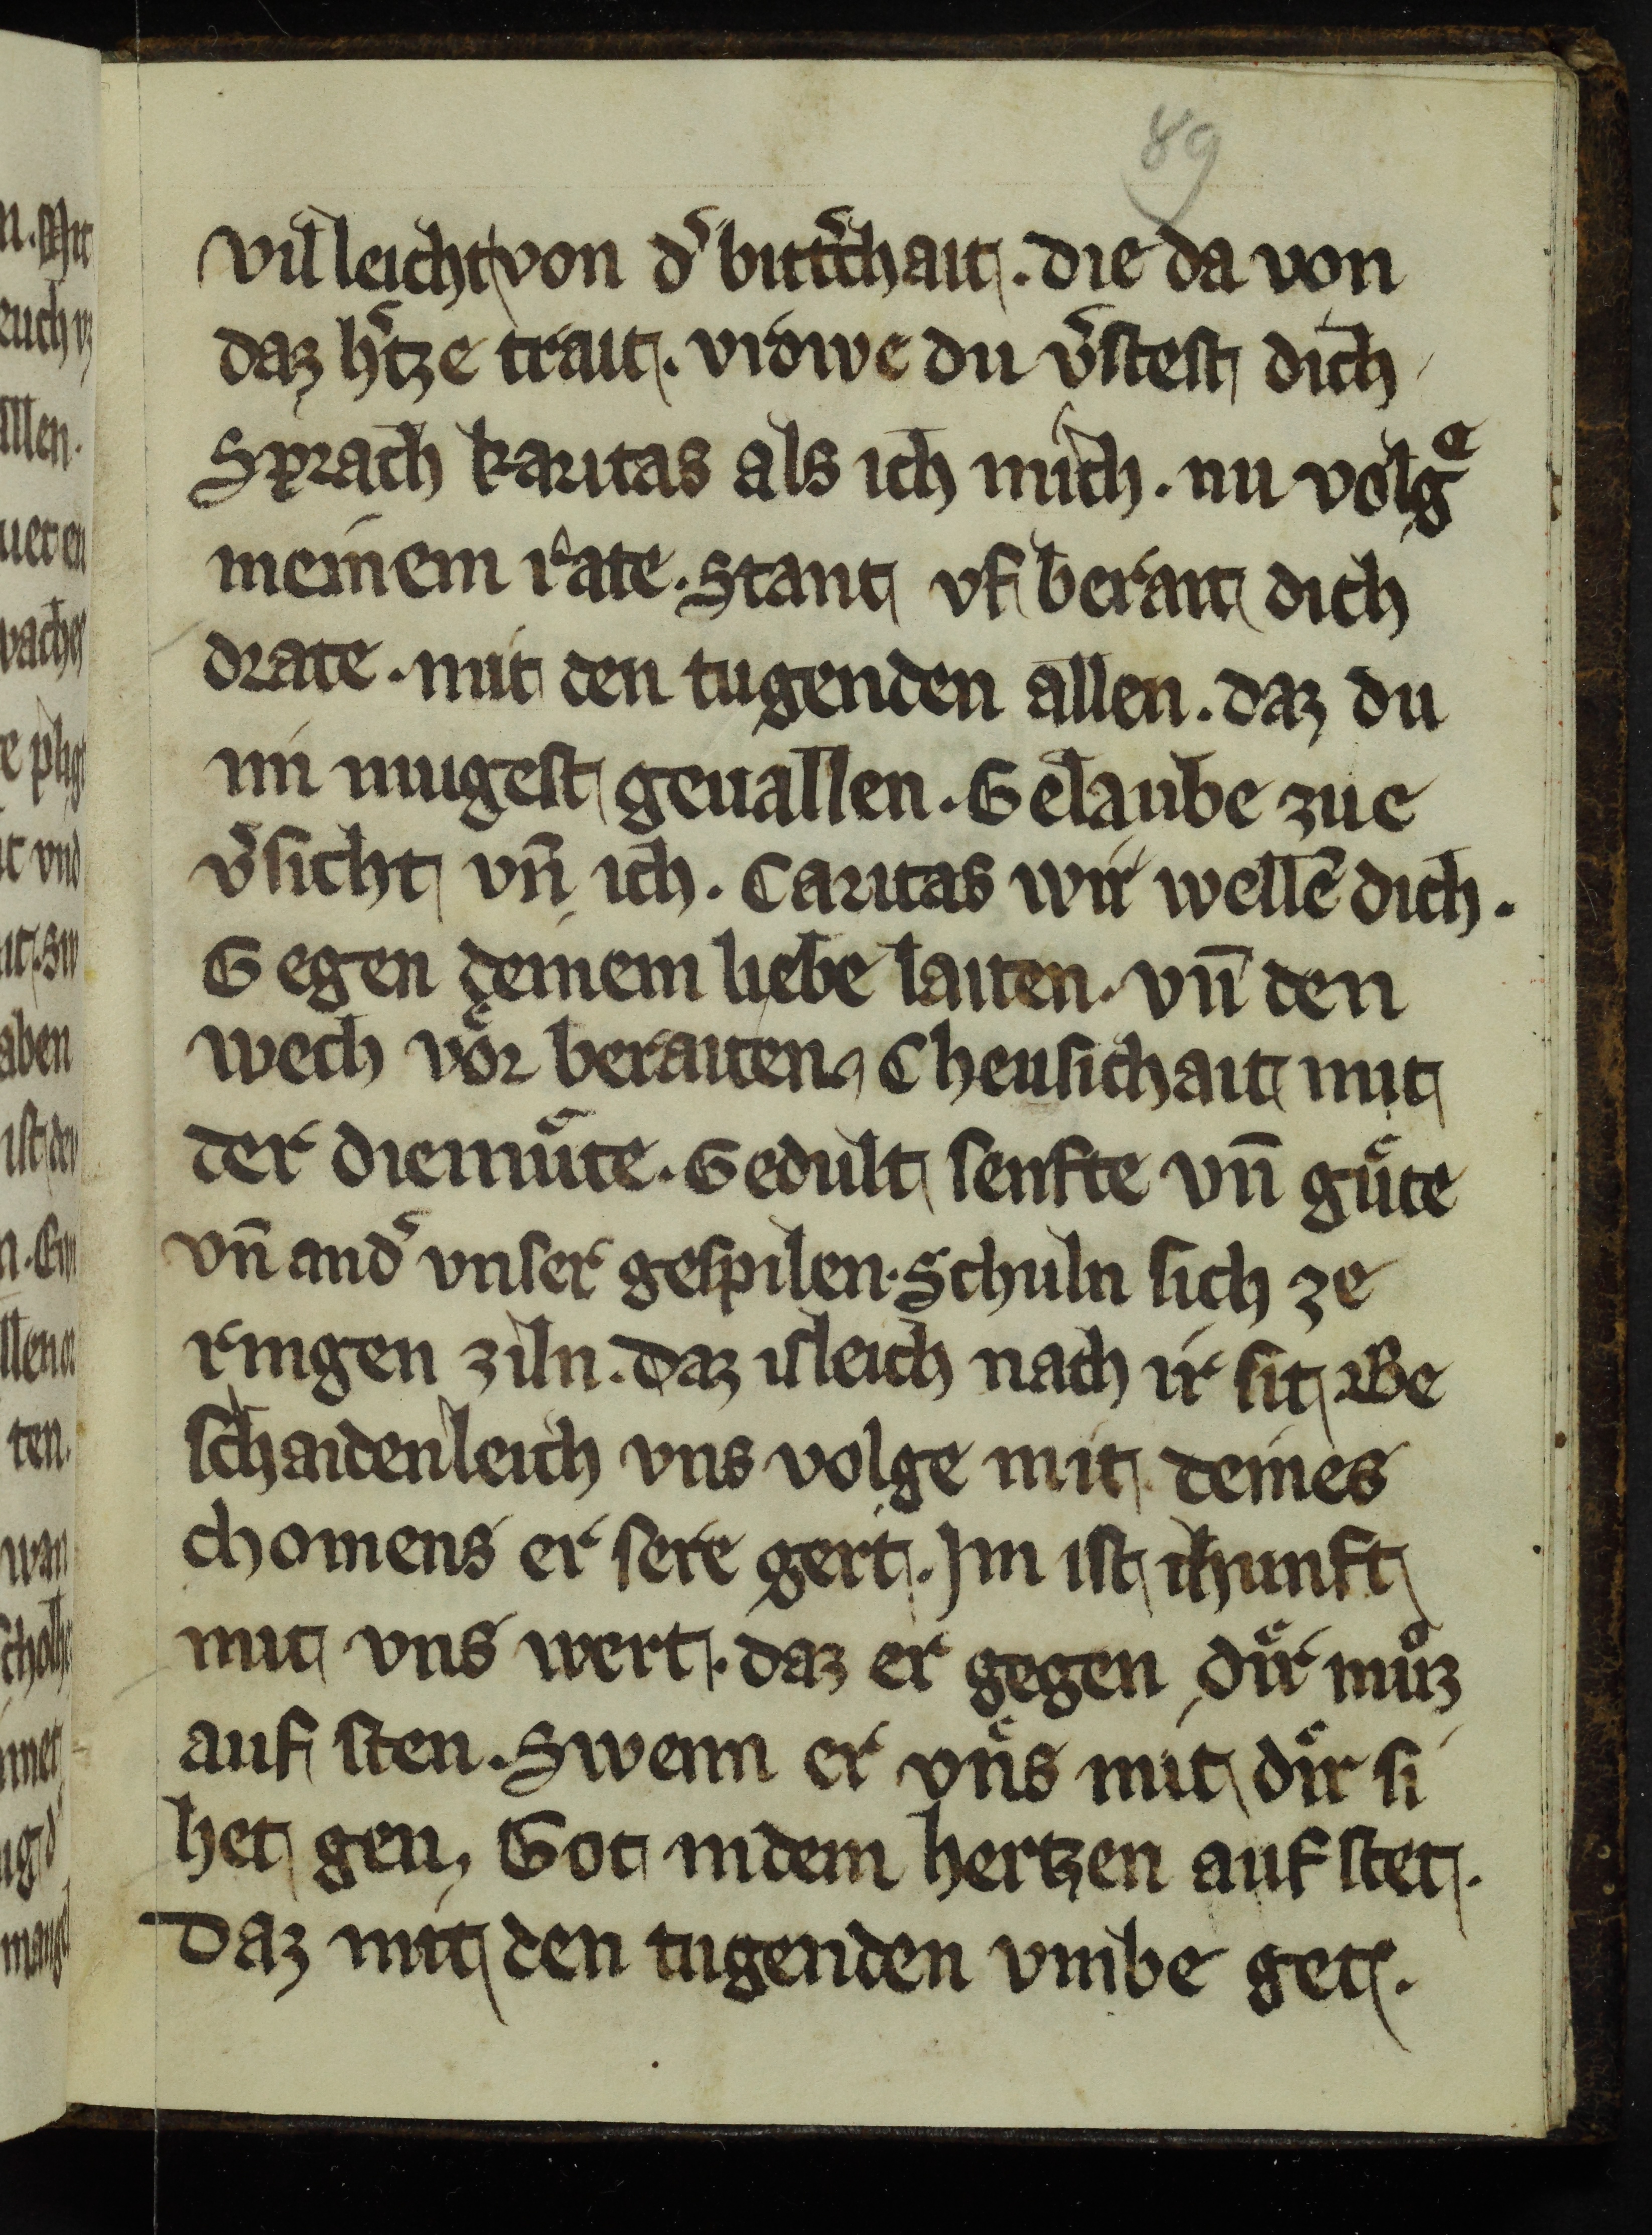 89
Vil leicht von dˢ bittˢchait. die da von
daz hˢtze trait. vrowe du vˢstest dich
Sprach karitas als ich mich. nu volgͤ
meinem rate. Stant vf berait dich
drate. mit den tugenden allen. daz du
im mugest geuallen. Gelaube zue
vˢsicht vn̄ ich. Caritas wir wellē dich.
Gegen deinem liebe laiten. vn̄ den
wech voͤr beraiten. Cheusichait mit
der diemuͤte. Gedult senfte vn̄ guͤte
vn̄ andˢ vnser gespilen. Schuln sich ze
ringen ziln. daz isleich nach ir sit Be
schaidenleich vns volge mit deines
chomens er sere gert. Im ist ikunft
mit vns wert. daz er gegen diͤr muͦz
auf sten. Swenn er vnͤs mit diͤr si
het gen, Got indem hertzen auf stet.
Daz mit den tugenden vmbe get.